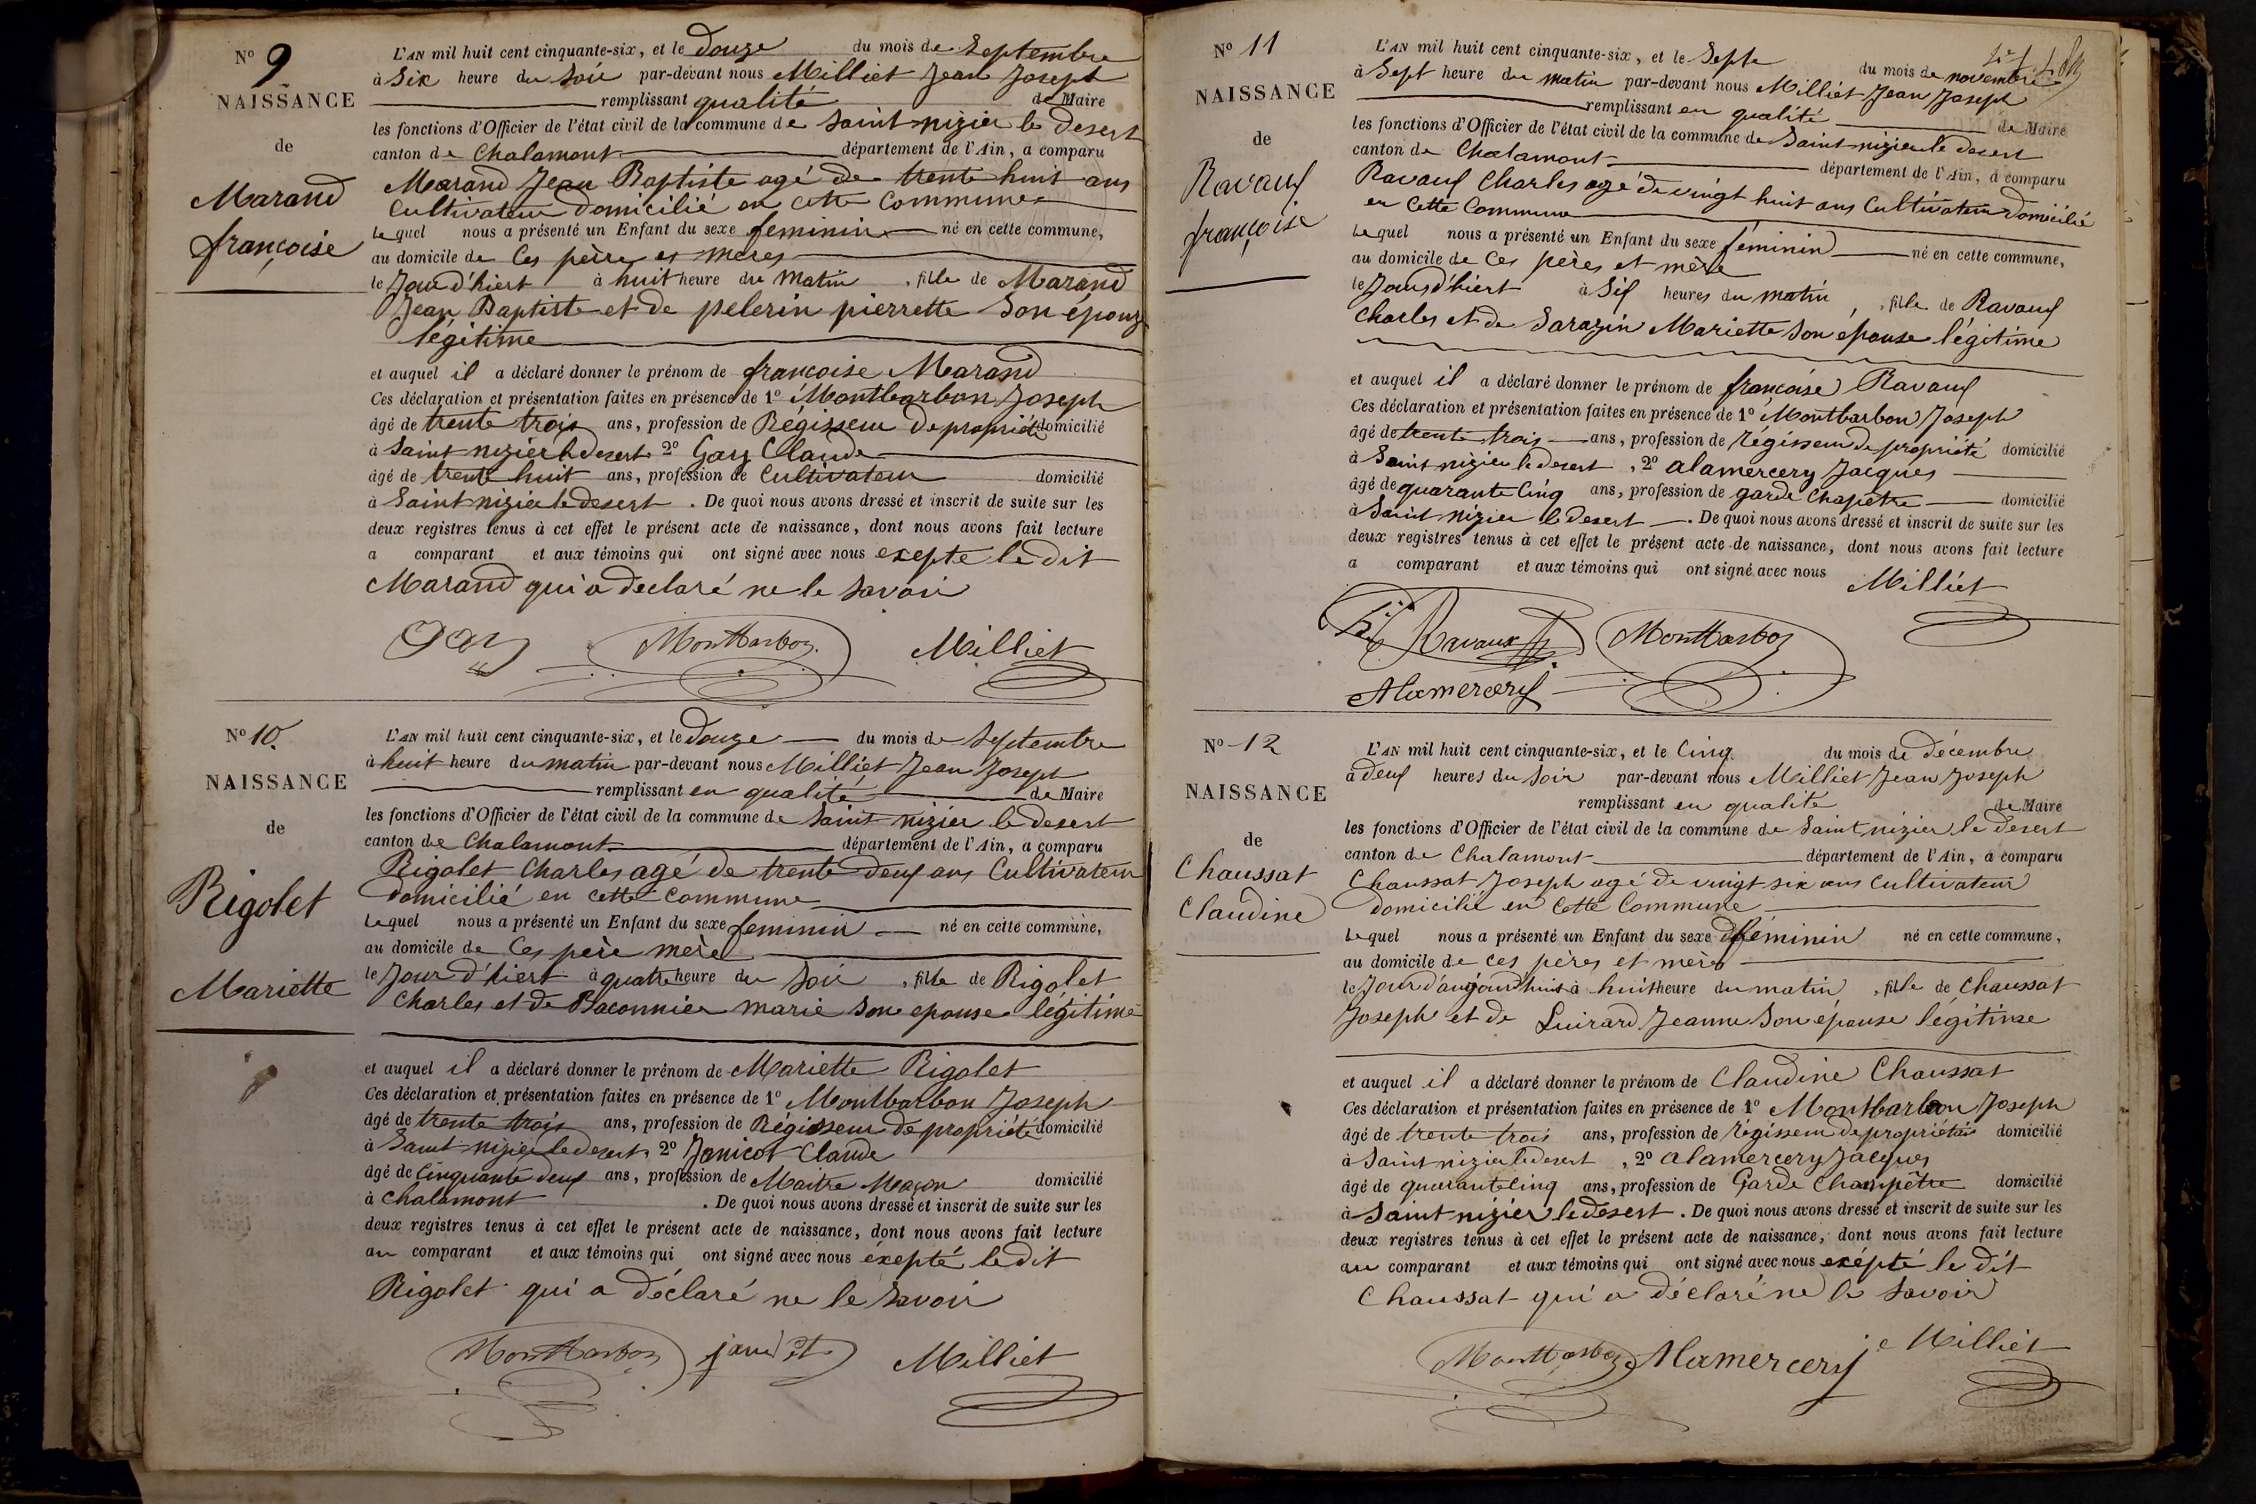 N° 9
NAISSANCE
de
Marand
françoise
L'AN mil huit cent cinquante-six, et le douze du mois de Septembre
à Six heure du Soir par-devant nous Milliet Jean Joseph
remplissant qualité de Maire
les fonctions d'Officier de l'état civil de la commune de Saint nizier le Desert
canton de Chalamont département de l'Ain, a comparu
Marand Jean Baptiste agé de trente huit ans
Cultivateur domicilié en cette Commune
Lequel nous a présenté un Enfant du sexe feminin né en cette commune,
au domicile de Ces père et mères
le Jour d'hiert à huit heure du Matin , fille de Marand
Jean Baptiste et de pelerin pierrette Son épouze
légitime
et auquel il a déclaré donner le prénom de françoise Marand
Ces déclaration et présentation faites en présence de 1° Montbarbon Joseph
âgé de trente trois ans, profession de Régisseur de propriété domicilié
à Saint nizier le desert 2° Gary Claude
âgé de trente huit ans, profession de Cultivateur domicilié
à Saint nizier le desert . De quoi nous avons dressé et inscrit de suite sur les
deux registres tenus à cet effet le présent acte de naissance, dont nous avons fait lecture
a comparant et aux témoins qui ont signé avec nous exepte le dit
Marand qui a déclaré ne le Savoir
Gary Montbarbon Milliet
N° 10.
NAISSANCE
de
Rigolet
Mariette
L'AN mil huit cent cinquante-six, et le douze du mois de Septembre
à huit heure du matin par-devant nous Milliet Jean Joseph
remplissant en qualité de Maire
les fonctions d'Officier de l'état civil de la commune de Saint nizier le desert
canton de Chalamont département de l'Ain, a comparu
Rigolet Charles agé de trente deux ans Cultivateur
domicilié en cette Commune
Lequel nous a présenté un Enfant du sexe feminin né en cette commune,
au domicile de Ces père mère
le Jour d'hiert à quatre heure du Soir , fille de Rigolet
Charles et de Baconnier marie Son epouse légitime
et auquel il a déclaré donner le prénom de Mariette Rigolet
Ces déclaration et présentation faites en présence de 1° Montbarbon Joseph
âgé de trente trois ans, profession de Régisseur de propriété domicilié
à Saint nizier le desert 2° Janicot Claude
âgé de Cinquante deux ans, profession de Maitre Maçon domicilié
à Chalamont . De quoi nous avons dressé et inscrit de suite sur les
deux registres tenus à cet effet le présent acte de naissance, dont nous avons fait lecture
au comparant et aux témoins qui ont signé avec nous éxepté le dit
Rigolet qui a déclaré ne le Savoir
Montbarbon Milliet
N° 11
NAISSANCE
de
Ravaux
françoise
L'AN mil huit cent cinquante-six, et le Septe du mois de novembre
à Sept heure du matin par-devant nous Milliet Jean Joseph
remplissant en qualité de Maire
les fonctions d'Officier de l'état civil de la commune de Saint nizier le desert
canton de Chalamont département de l'Ain, a comparu
Ravaux Charles agé de vingt huit ans Cultivateur domicilié
en Cette Commune
Lequel nous a présenté un Enfant du sexe féminin né en cette commune,
au domicile de Ces pères et mère
le Jour d'hiert à Six heures du matin , fille de Ravaux
Charles et de Sarazin Mariette Son épouse légitime
et auquel il a déclaré donner le prénom de françoise Ravaux
Ces déclaration et présentation faites en présence de 1° Montbarbon Joseph
âgé de trente trois ans, profession de régisseur de propriété domicilié
à Saint nizier le desert , 2° alamercery Jacques
âgé de quarante Cinq ans, profession de garde Chapêtre domicilié
à Saint nizier le desert . De quoi nous avons dressé et inscrit de suite sur les
deux registres tenus à cet effet le présent acte de naissance, dont nous avons fait lecture
a comparant et aux témoins qui ont signé avec nous Milliet
Ravaux Montbarbon
Alamercery
N° 12
NAISSANCE
de
Chaussat
Claudine
L'AN mil huit cent cinquante-six, et le Cinq du mois de décembre
à deux heures du Soir par-devant nous Milliet Jean Joseph
remplissant en qualité de Maire
les fonctions d'Officier de l'état civil de la commune de Saint nizier le desert
canton de Chalamont département de l'Ain, a comparu
Chaussat Joseph agé de vingt six ans Cultivateur
domicilié en Cette Commune
Lequel nous a présenté un Enfant du sexe féminin né en cette commune,
au domicile de Ces pères et mère
le Jour d'aujourd'huit à huit heure du matin , fille de Chaussat
Joseph et de Luirard Jeanne Son épouse légitime
et auquel il a déclaré donner le prénom de Claudine Chaussat
Ces déclaration et présentation faites en présence de 1° Montbarbon Joseph
âgé de trente trois ans, profession de régisseur de propriétés domicilié
à Saint nizier le desert , 2° alamercery Jacques
âgé de quarante Cinq ans, profession de Garde Champêtre domicilié
à Saint nizier le desert . De quoi nous avons dressé et inscrit de suite sur les
deux registres tenus à cet effet le présent acte de naissance, dont nous avons fait lecture
au comparant et aux témoins qui ont signé avec nous exépté le dit
Chaussat qui a déclaré ne le Savoir
Montbarbon Alamercery Milliet